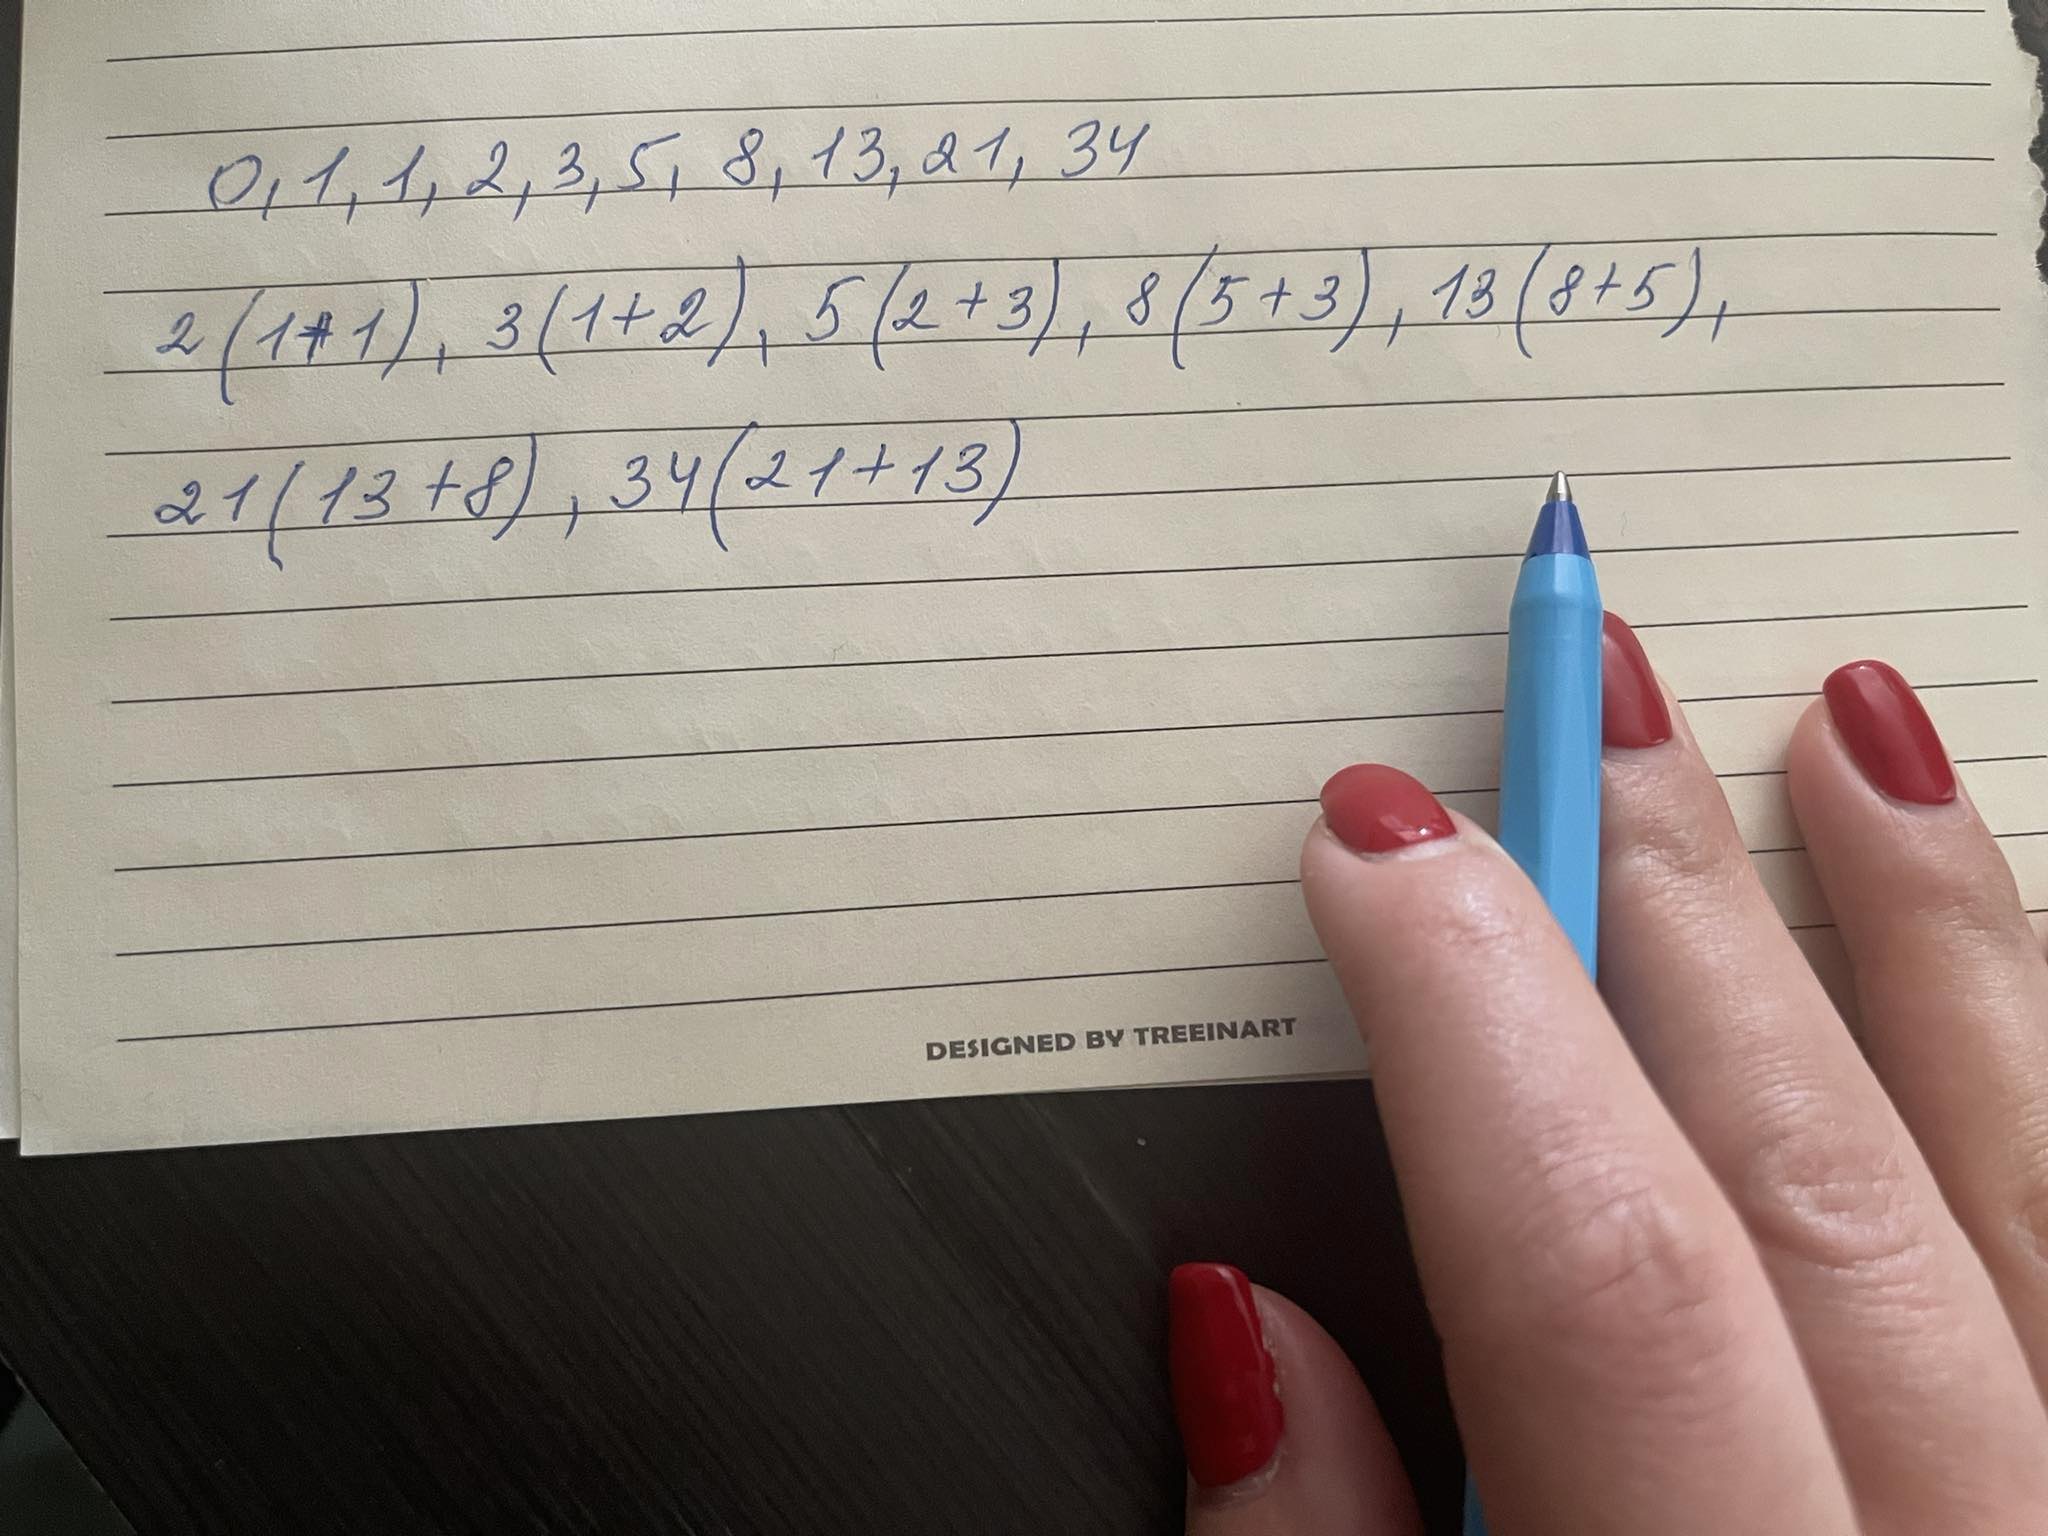 0, 1, 1, 2, 3, 5, 8, 13, 21, 34
2(1+1), 3(1+2), 5(2+3), 8(5+3), 13(8+5),
21(13+8), 34(21+13)
DESIGNED BY TREEINART